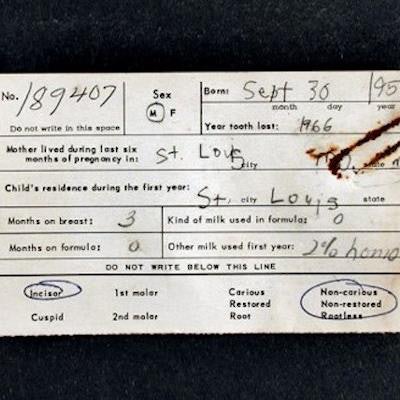 No. 189407 Sex M F Born: Sept 30 195
month day year
Do not write in this space Year tooth lost: 1966
Mother lived during last six months of pregnancy in: St. Louis city mo. state
Child's residence during the first year: St. Louis city state
Months on breast: 3 Kind of milk used in formula: 0
Months on formula: 0 Other milk used first year: 2% homo
DO NOT WRITE BELOW THIS LINE
Incisor 1st molar Carious Non-carious
Restored Non-restored
Cuspid 2nd molar Root Rootless